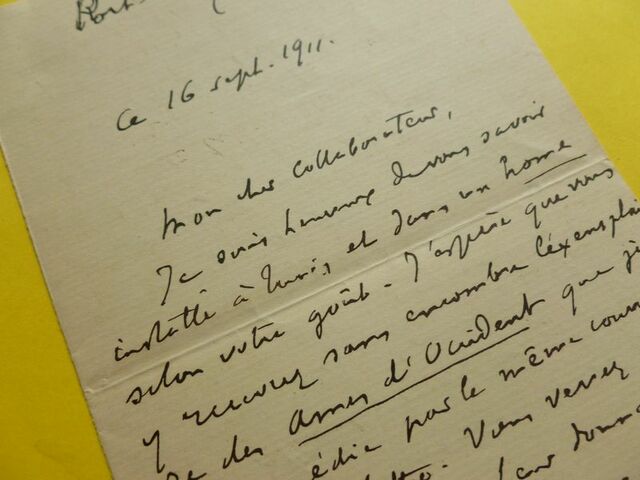 Port-
Ce 16 sept. 1911.
Mon cher Collaborateur,
Je suis heureux de vous savoir
installé à Tunis et dans un home
selon votre goût. J'espère que vous
y recevrez sans encombre l'exemplai
des Ames d'Occident que je
édie par le même cour
Vous verrez